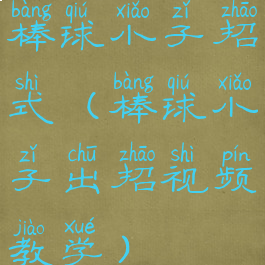 bàng qiú xiǎo zǐ zhāo
棒球小子招
shì bàng qiú xiǎo
式（棒球小
zǐ chū zhāo shì pín
子出招视频
jiào xué
教学）